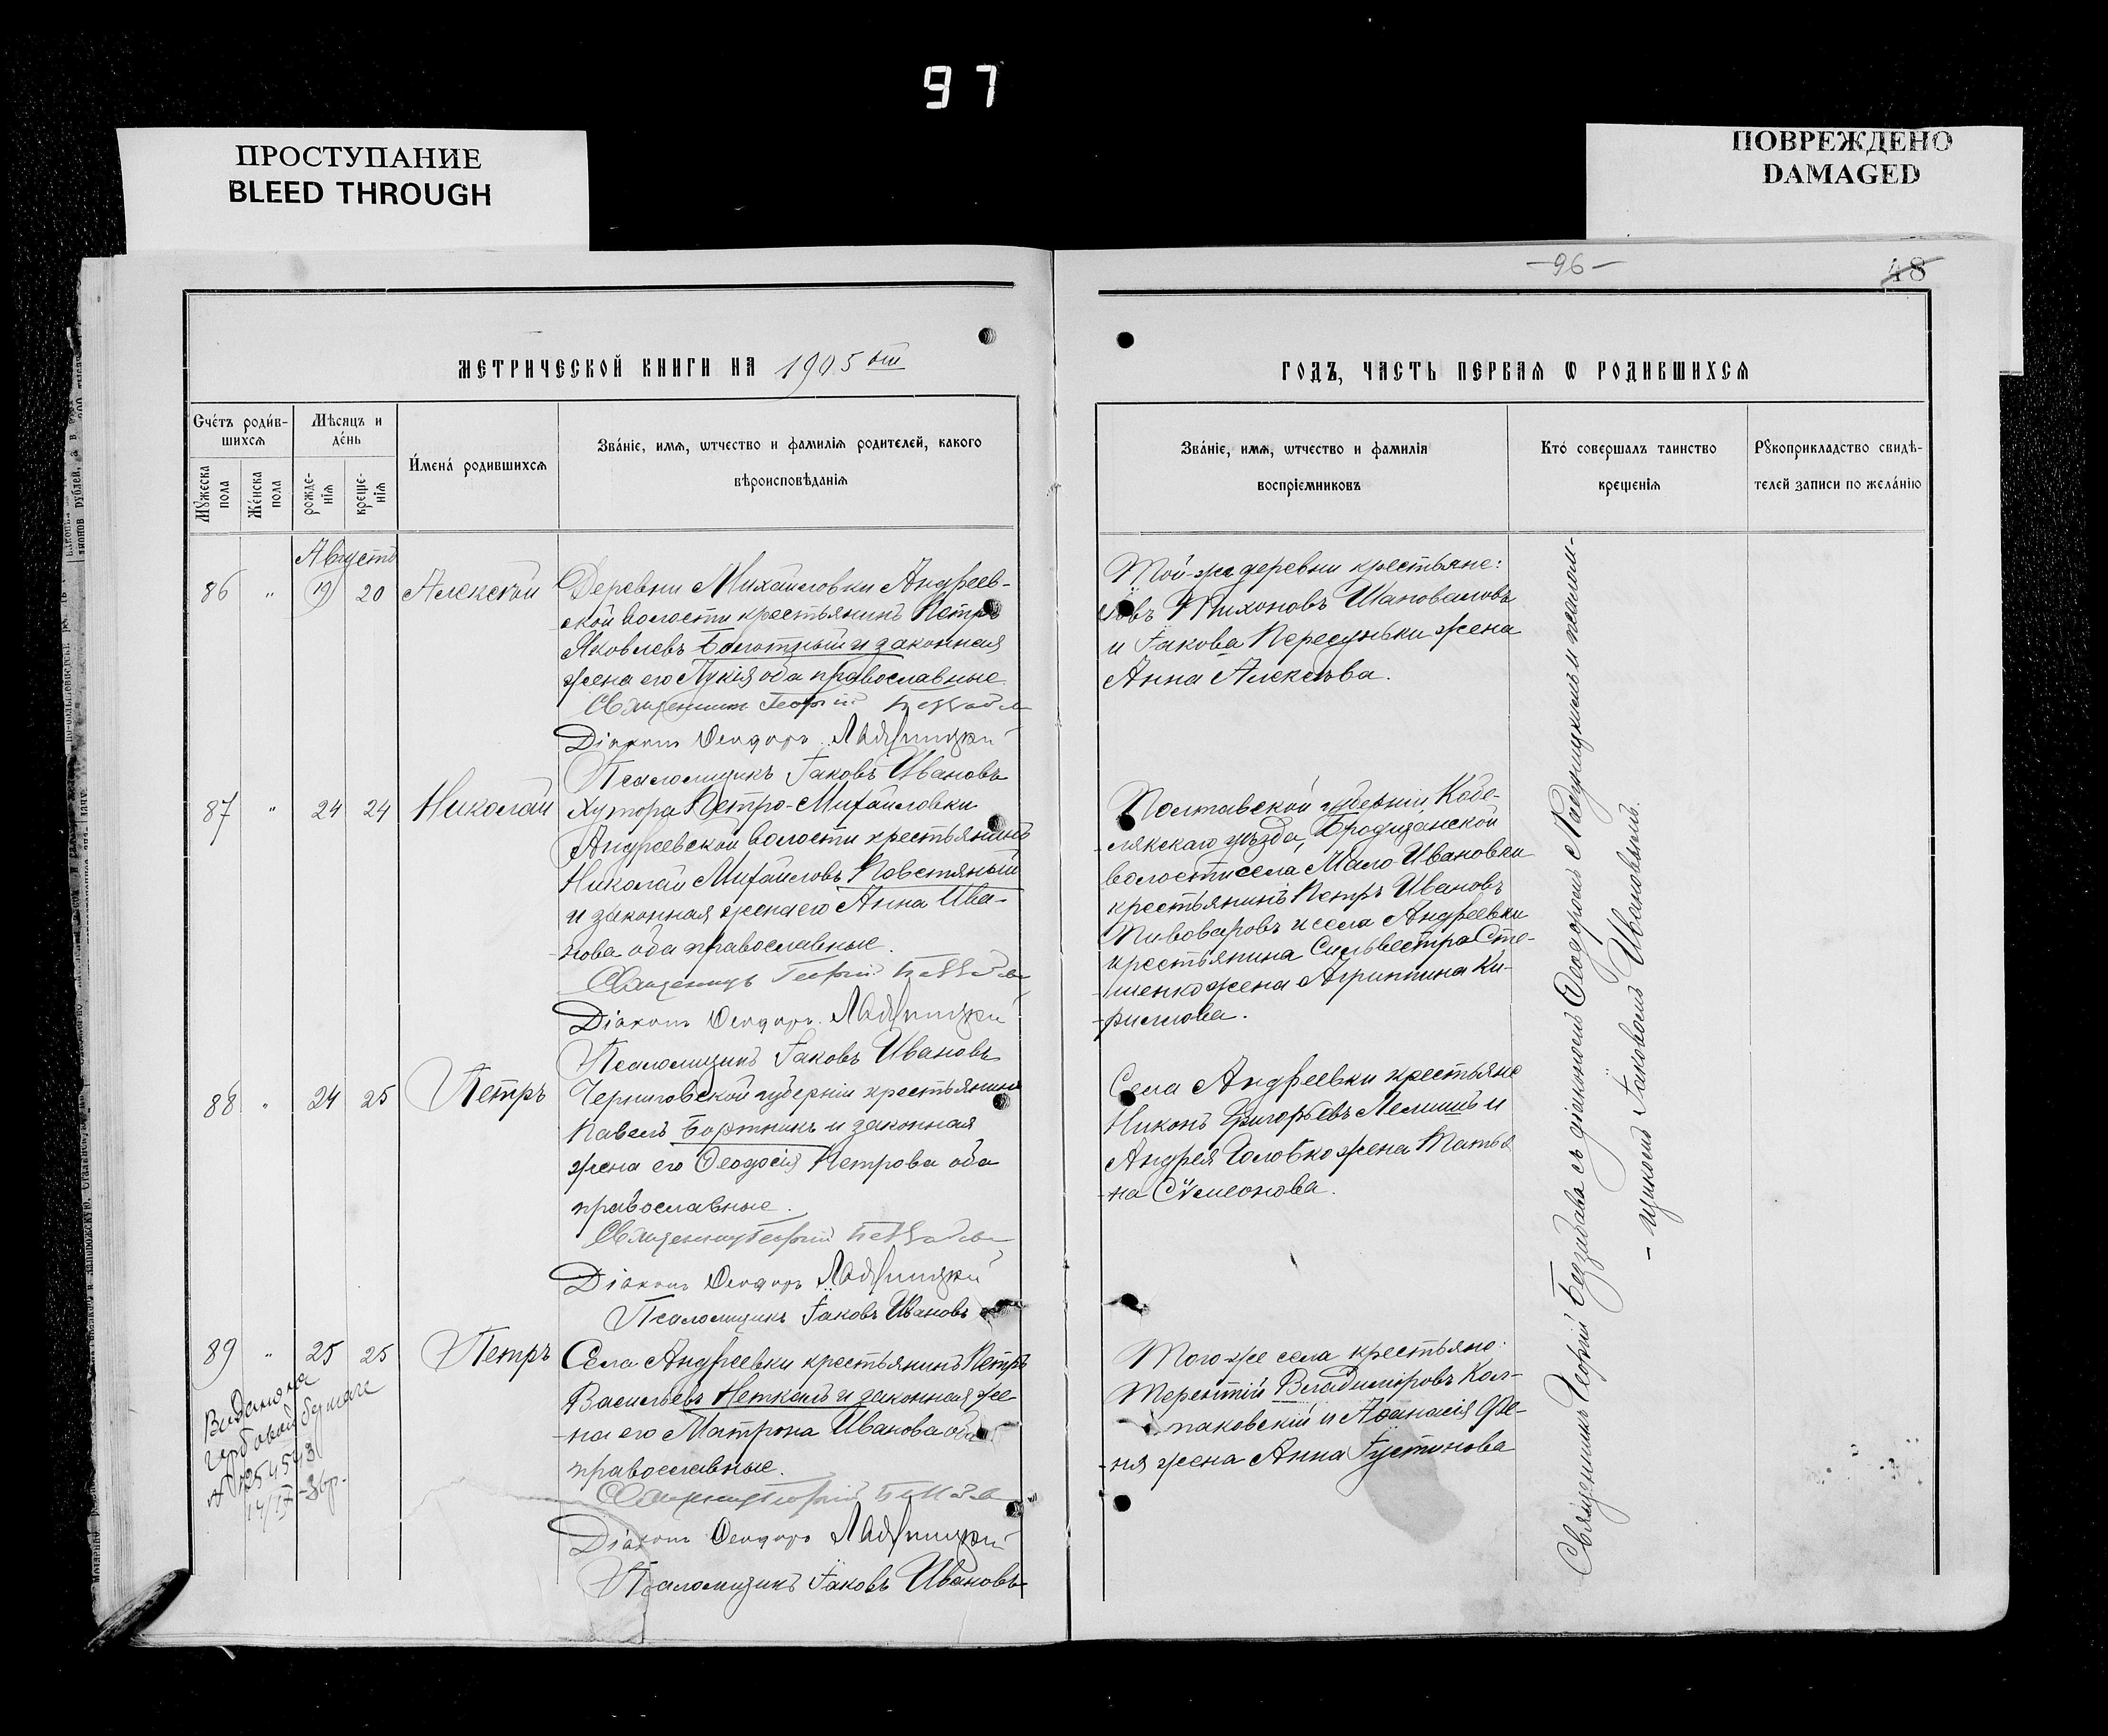 97
ПРОСТУПАНИЕ
BLEED THROUGH
ПОВРЕЖДЕНО
DAMAGED
-96-
48
МЕТРИЧЕСКОЙ КНИГИ НА 1905 ый
ГОДЪ, ЧАСТЬ ПЕРВАЯ Ѡ РОДИВШИХСЯ
Счéтъ родúв-
шихсѧ
Мꙋжеска пола
Жéнска пола
Мѣсяцъ и
дéнь
рожде-
нїѧ
креще-
нїѧ
И́менá родившихсѧ
Звáнїе, имѧ, ѡтчество и фамилїѧ родителей, какого
вѣроисповѣданїѧ
Звáнїе, имѧ, ѡтчество и фамилїѧ
воспрїемниковъ
Ктó совершалъ таинство
крещенїѧ
Рꙋкоприкладство свидѣ-
телей записи по желáнїю
Августъ
86 " 19 20 Алексѣй
Деревни Михайловки Андреев-
ской волости крестьянинъ Петръ
Яковлевъ Болотный и законная
жена его Лукія оба православные
Священникъ Георгій Беззабава
Діаконъ Ѳеодоръ Ладухицкій
Псаломщикъ Іаковъ Ивановъ
Той-же деревни крестьяне:
Тихоновъ Шаповаловъ
и Іакова Пересуньки жена
Анна Алексѣева.
87 " 24 24 Николай
Хутора Петро-Михайловки
Андреевской волости крестьянинъ
Николай Михайловъ Повстяный
и законная жена его Анна Ива-
нова оба православные.
Священникъ Георгій Беззабава
Діаконъ Ѳеодоръ Ладухицкій
Псаломщикъ Іаковъ Ивановъ
Полтавской губерніи, Кобе-
лякскаго уѣзда, Бродщанской
волости села Мало-Ивановки
крестьянинъ Петръ Ивановъ
Пивоваровъ и села Андреевки
крестьянина Сильвестра Сте-
шенко жена Агриппина Ки-
риллова.
88 " 24 25 Петръ
Черниговской губерніи крестьянинъ
Павелъ Бортникъ и законная
жена его Ѳеодосія Петрова оба
православные.
Священникъ Георгій Беззабава
Діаконъ Ѳеодоръ Ладухицкій
Псаломщикъ Іаковъ Ивановъ
Села Андреевки крестьяне
Никонъ Григорьевъ Лемишъ и
Андрея Головко жена Татья
-на Сѵмеонова.
89 " 25 25 Петръ
Села Андреевки крестьянинъ Петръ
Васильевъ Неткалъ и законная же-
-на его Матрона Иванова оба
православные.
Священникъ Георгій Беззабава
Діаконъ Ѳеодоръ Ладухицкій
Псаломщикъ Іаковъ Ивановъ
Того-же села крестьяне:
Терентій Владиміровъ Кол-
паковскій и Аѳанасія Фе-
ня жена Анна Іустинова
Выдана на
гербовой бумаге
Священникъ Георгій Беззабава съ діакономъ Ѳеодоромъ Ладухицкимъ и псалом-
- щикомъ Іаковомъ Ивановымъ.